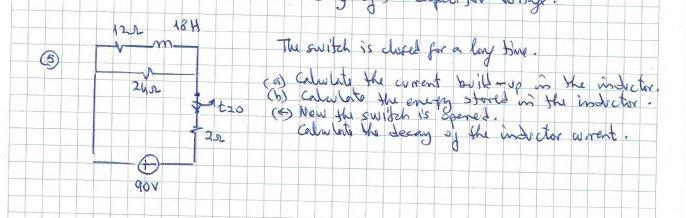 12Ω 18H
⑤
24Ω
t=0
2Ω
90V
The switch is closed for a long time.
(a) Calculate the current build-up in the inductor.
(b) Calculate the energy stored in the inductor.
(c) Now the switch is opened.
Calculate the decay of the inductor current.